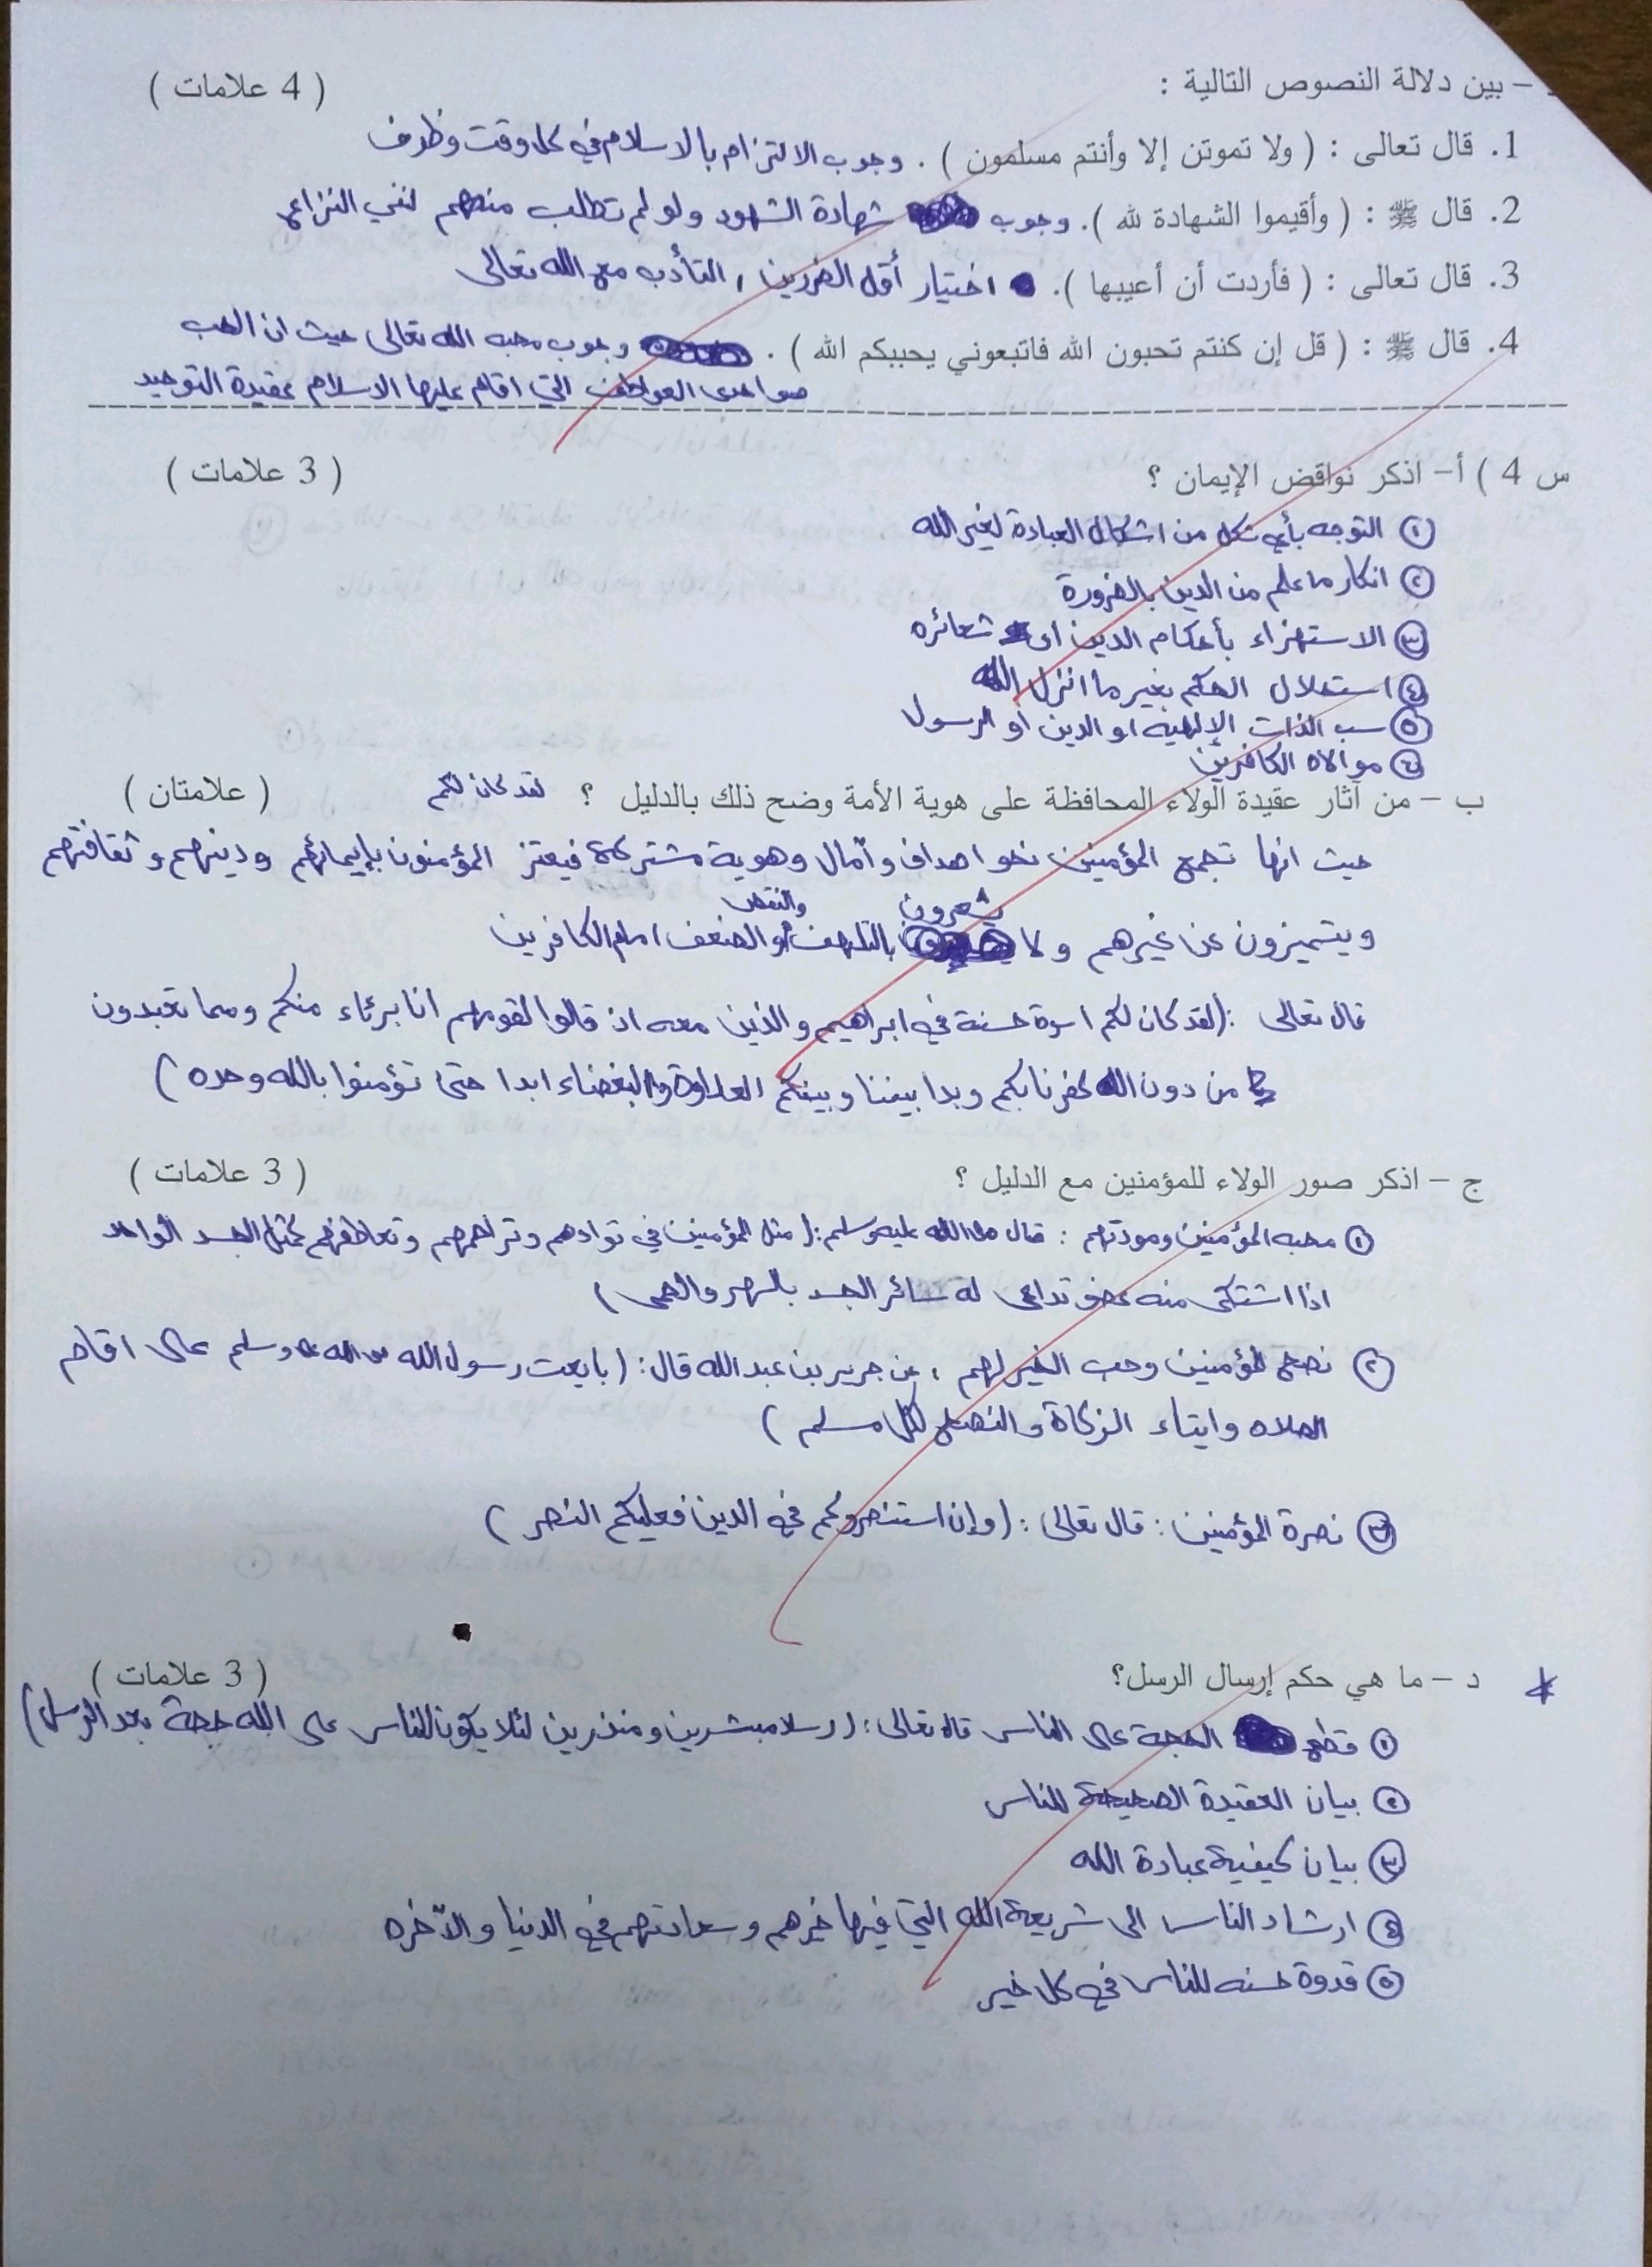 - بين دلالة النصوص التالية : ( 4 علامات )
1. قال تعالى : ( ولا تموتن إلا وأنتم مسلمون ) . وجوب الالتزام بالاسلام في كل وقت وظرف
2. قال ﷺ : ( وأقيموا الشهادة لله ). وجوب شهادة الشهود ولو لم تطلب منهم لنفي النزاع
3. قال تعالى : ( فأردت أن أعيبها ). اختيار أقل الضررين ، التأدب مع الله تعالى
4. قال ﷺ : ( قل إن كنتم تحبون الله فاتبعوني يحببكم الله ) . وجوب محبه الله تعالى حيث ان الحب
هو احدى العواطف التي اقام عليها الاسلام عقيدة التوحيد
س 4 ) أ- اذكر نواقض الإيمان ؟ ( 3 علامات )
① التوجه بأي شكل من اشكال العبادة لغير الله
② انكار ما علم من الدين بالضرورة
③ الاستهزاء بأحكام الدين او شعائره
④ استحلال الحكم بغير ما انزل الله
⑤ سب الذات الإلهيه او الدين او الرسول
⑥ موالاه الكافرين
ب - من آثار عقيدة الولاء المحافظة على هوية الأمة وضح ذلك بالدليل ؟ لقد كان لكم ( علامتان )
حيث انها تجمع المؤمنين نحو اهداف وآمال وهوية مشتركة فيعتز المؤمنون بإيمانهم ودينهم وثقافتهم
ويتميزون عن غيرهم ولا يشعرون والنقص أو الضعف امام الكافرين
قال تعالى : (لقد كان لكم اسوة حسنة في ابراهيم والذين معه اذ قالوا لقومهم انا برءاء منكم ومما تعبدون
من دون الله كفرنا بكم وبدا بيننا وبينكم العداوة والبغضاء ابدا حتى تؤمنوا بالله وحده )
ج - اذكر صور الولاء للمؤمنين مع الدليل ؟ ( 3 علامات )
① محبه المؤمنين ومودتهم : قال صلى الله عليه وسلم : ( مثل المؤمنين في توادهم وتراحمهم وتعاطفهم كمثل الجسد الواحد
اذا اشتكى منه عضو تداعى له سائر الجسد بالسهر والحمى )
② نصح المؤمنين وحب الخير لهم ، عن جرير بن عبد الله قال : ( بايعت رسول الله صلى الله عليه وسلم على اقام
الصلاه وايتاء الزكاة والنصح لكل مسلم )
③ نصرة المؤمنين : قال تعالى : ( وإن استنصروكم في الدين فعليكم النصر )
د - ما هي حكم إرسال الرسل؟ ( 3 علامات )
① قطع الحجة على الناس قال تعالى : ( رسلا مبشرين ومنذرين لئلا يكون للناس على الله حجة بعد الرسل )
② بيان العقيدة الصحيحة للناس
③ بيان كيفية عبادة الله
④ ارشاد الناس الى شريعة الله التي فيها خيرهم وسعادتهم في الدنيا والآخره
⑤ قدوة حسنه للناس في كل خير